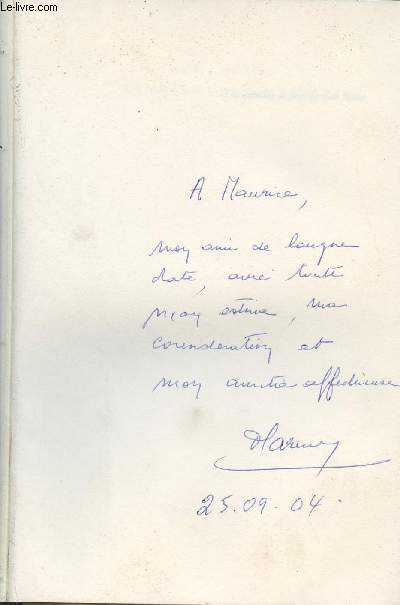 Le-livre.com
A Maurice,
mon ami de longue
date, avec toute
mon estime, ma
consideration et
mon amitié affectueuse
25.09.04.